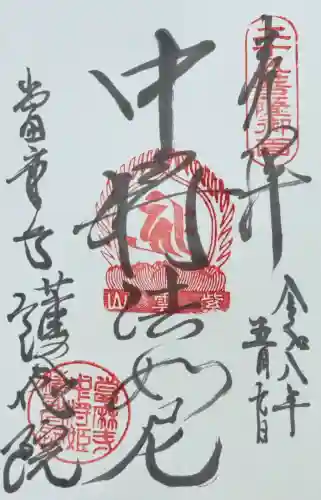 奉拝
令和八年
五月七日
中将法如尼
紫雲山
當麻寺
中将姫
當麻寺
護念院